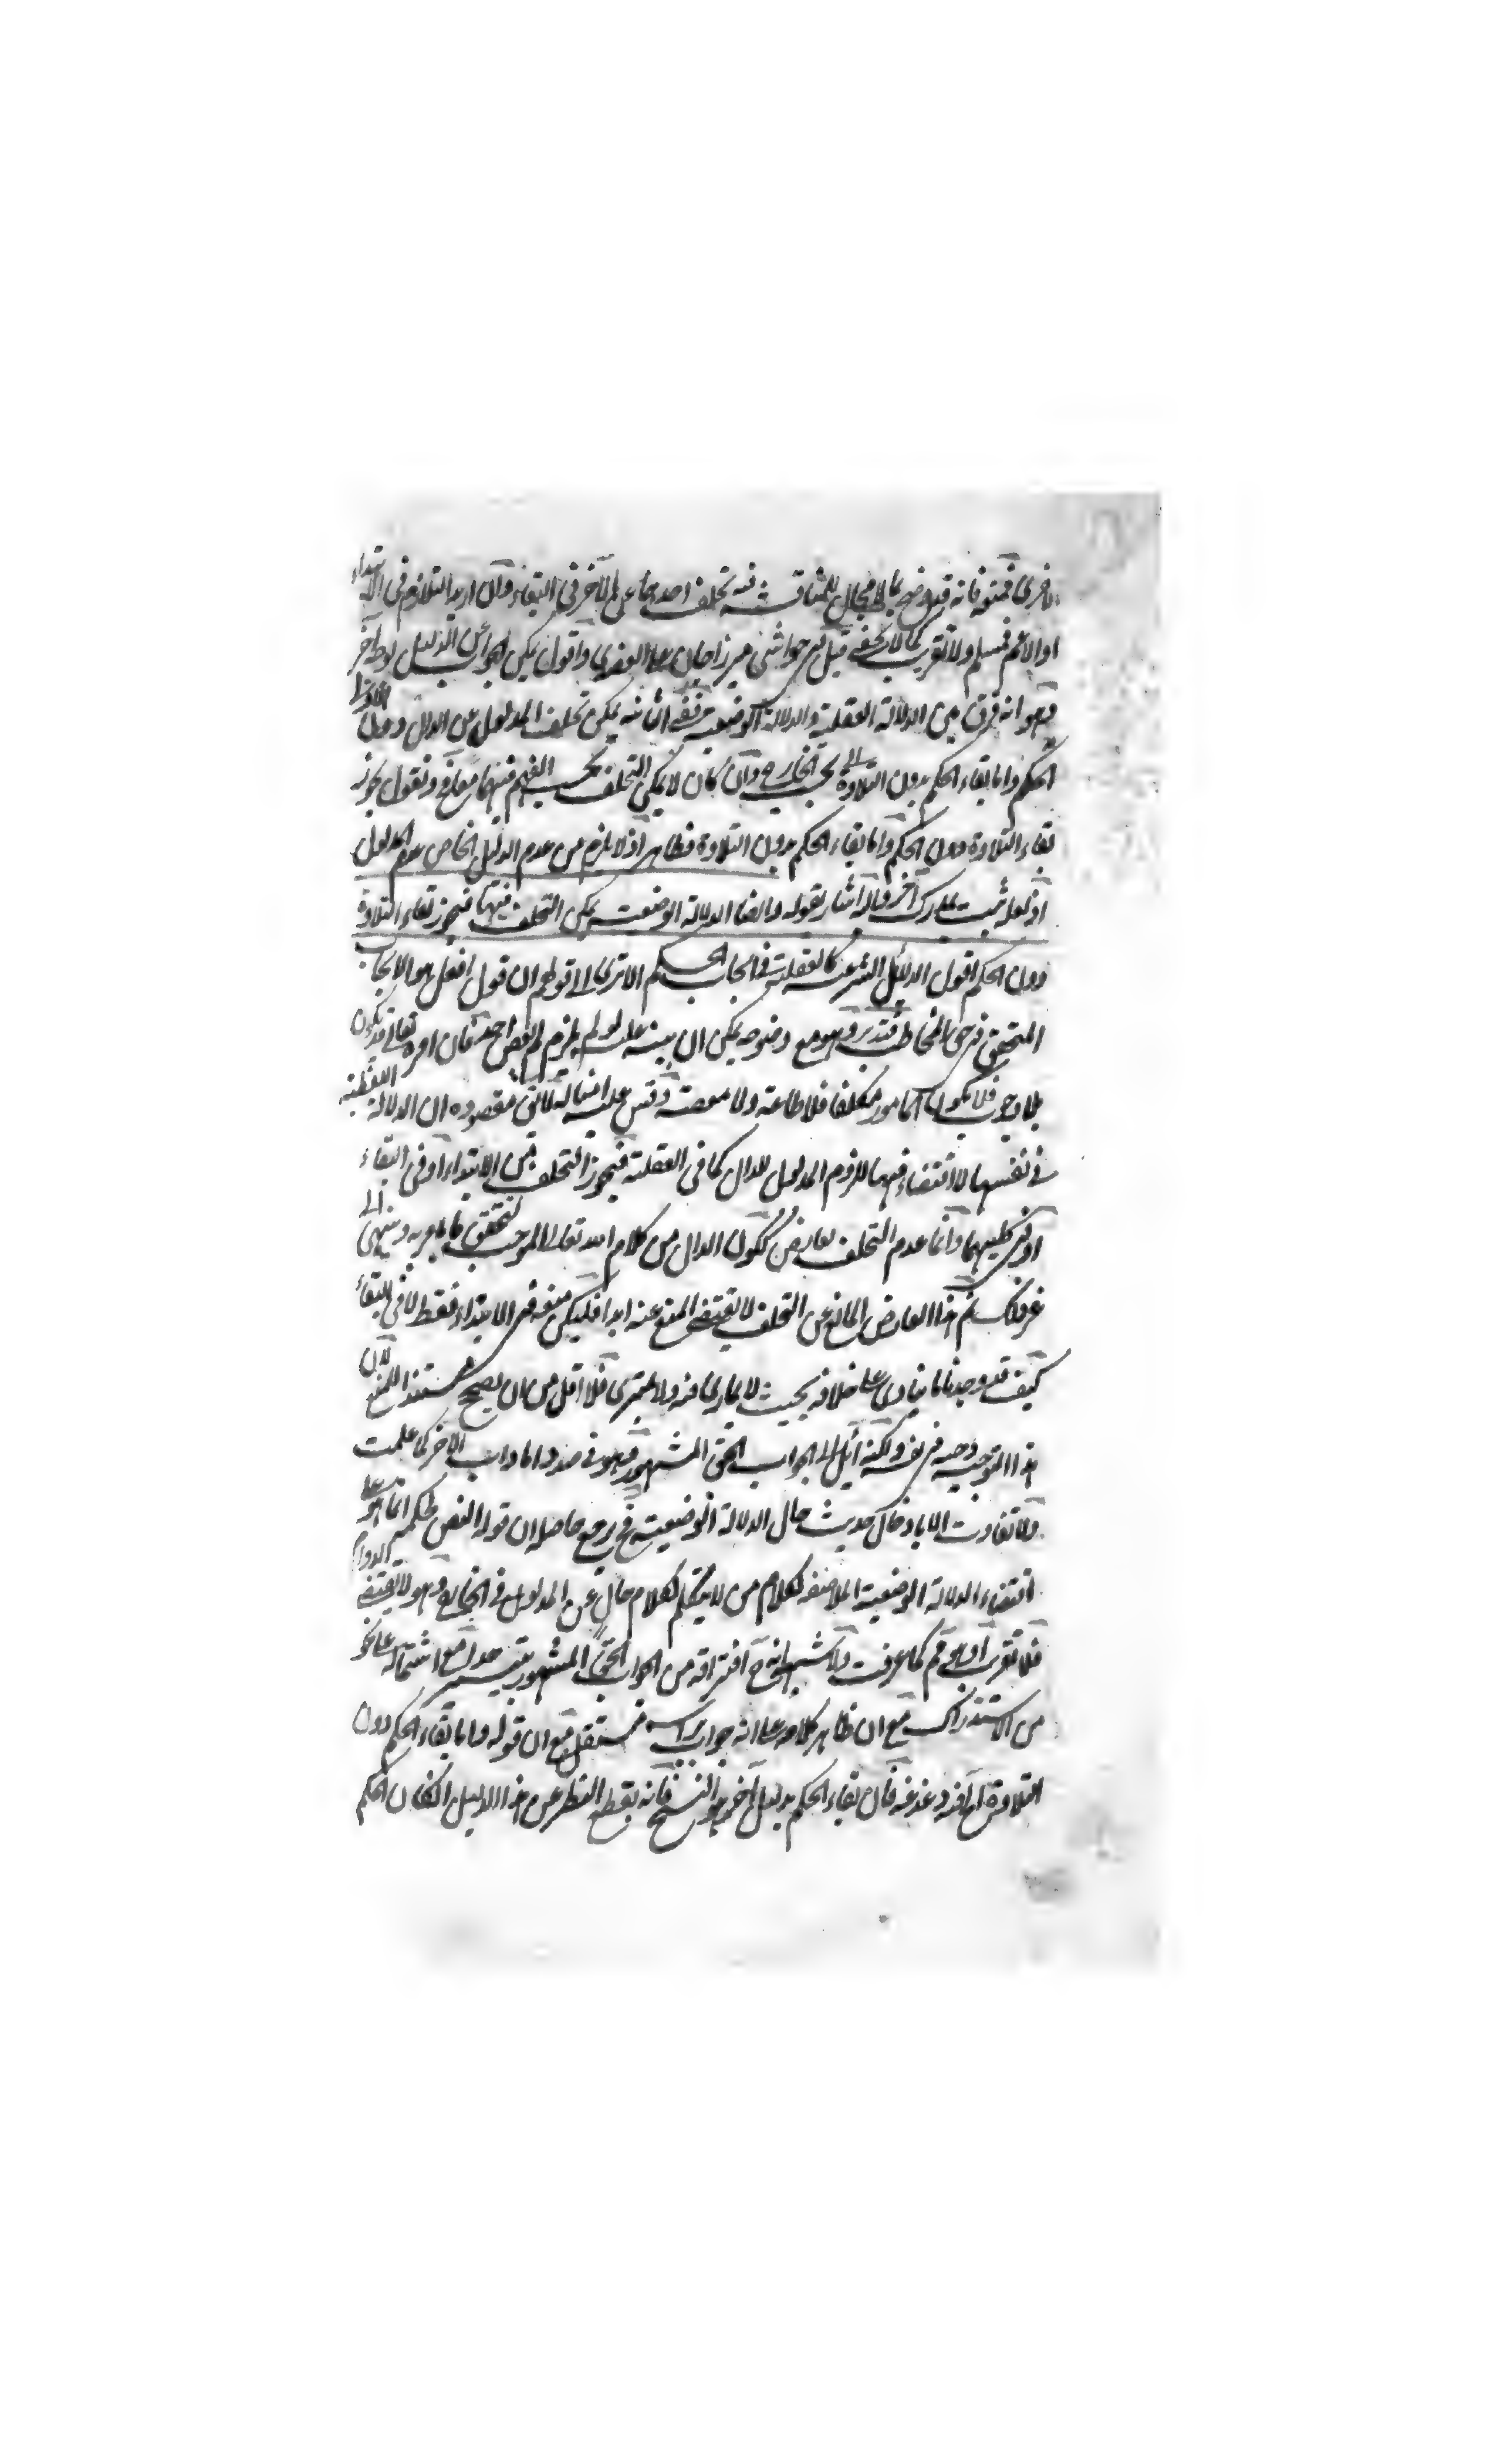 فممنوع فانه قد وضح بما لا مجال للمناقشة فيه تخلف احدهما عن الآخر في البقاء وان اريد التلازم في الابتداء
او الاعم فمسلم ولا تقريب كما لا يخفى قيل في حواشي ميرزاجان على العضدي واقول يمكن الجواب عن الدليل بوجه آخر
وهو انه فرق بين الدلالة العقلية والدلالة الوضعية ففي الثانية يمكن تخلف المدلول عن الدال دون الاولى
الحكم واما بقاء الحكم بدون التلاوة بحسب الخارج وان كان لا يمكن التخلف بحسب الفهم فيهما ونقول يجوز
بقاء التلاوة دون الحكم واما بقاء الحكم بدون التلاوة فظاهر اذ لا يلزم من عدم الدليل الخاص عدم المدلول
اذ لعله ثبت بمدرك آخر واليه اشار بقوله وايضا الدلالة الوضعية يمكن التخلف فيها فيجوز بقاء التلاوة
دون الحكم اقول الدلائل الشرعية كالعقلية في ايجاب الحكم الا ترى الى قولهم ان قول افعل هو الايجاب
المتحقق في حق المخاطب فتدبر وهو مع وضوحه يمكن ان ينبه عليه لو لم يلزم لم يعص احد فان امره تعالى قد يكون
بلا وجوب فلا يكون المأمور مكلفا فلا طاعة ولا معصية وقس عليه امثاله لان مقصوده ان الدلالة اللفظية
في نفسها لا اقتضاء فيها للزوم المدلول للدال كما في العقلية فيجوز التخلف في الابتداء او في البقاء
او في كليهما وانما عدم التخلف بعارض ككون الدال من كلام الله تعالى الموجب لتحقق ما يأمر به وينهى الى
غير ذلك ثم هذا العارض المانع عن التخلف لا يقتضي المنع عنه ابدا فليكن منعه في الابتداء فقط لا في البقاء
كيف قد وجدنا ما ينادي على خلافه بحيث لا يماري فيه ولا يمتري فلا اقل من ان يصح مستندا للمنع لان
هذا التوجيه وجيه في نفسه ولكنه آئل الى الجواب الحق المشهور فهو في صدد ابداء جواب آخر كما علمت
ولا تفاوت الا بادخال حديث حال الدلالة الوضعية فح يرجع حاصله ان قوله النص لحكم انما هو على
اقتضاء الدلالة الوضعية الملاصقة لكلام من لا يتكلم بكلام خال عن المدلول في الخارج وهو لا يقتضي الدوام
فلا تقريب او هو مم كما عرفت ولا شبهة انه ح افتراقه من الجواب الحق المشهور يتيسر جدا مع اشتماله على نحو
من الاستدراك مع ان ظاهر كلامه على انه جواب برأسه مستقل مع ان قوله واما بقاء الحكم دون
التلاوة آه فيه دغدغة فان بقاء الحكم بدليل آخر هو النسخ فانه بقطع النظر عن هذا الدليل ان كان الحكم